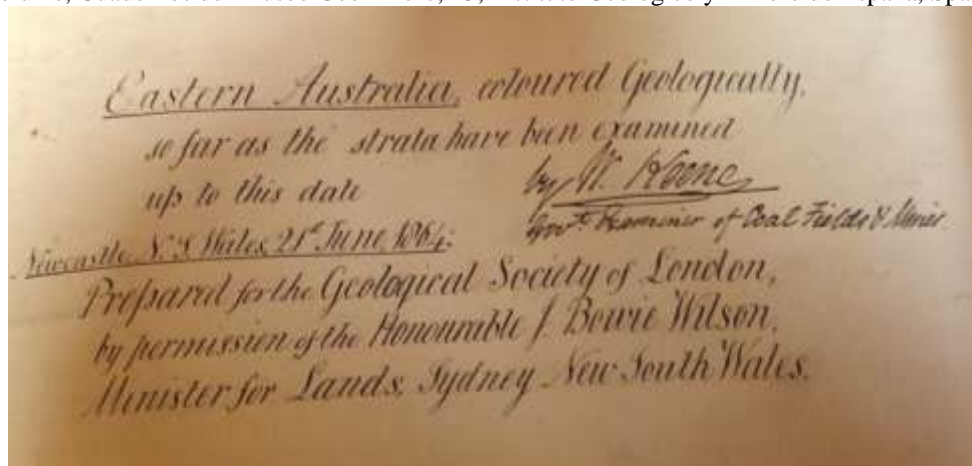 Eastern Australia, coloured Geologically,
so far as the strata have been examined
up to this date
by W. Keene
Govt. Examiner of Coal Fields & Mines
Newcastle, N. S. Wales, 21st June 1864.
Prepared for the Geological Society of London,
by permission of the Honourable J. Bowie Wilson,
Minister for Lands, Sydney New South Wales.